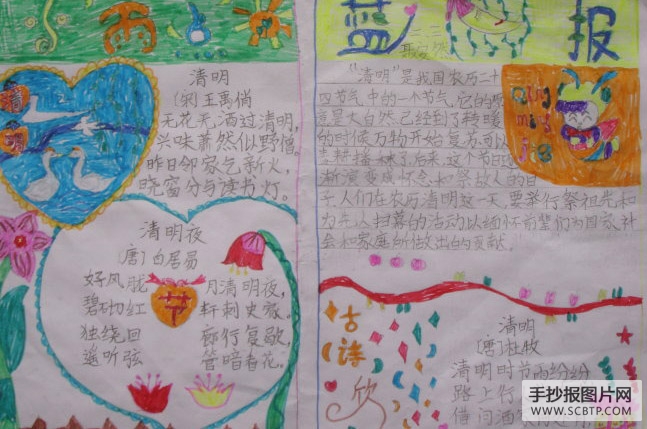 雨
蓝
报
清明
(宋)王禹偁
无花无酒过清明,
兴味萧然似野僧。
昨日邻家乞新火,
晓窗分与读书灯。
清明夜
(唐)白居易
好风胧月清明夜,
碧砌红轩刺史家。
独绕回廊行复歇,
遥听弦管暗看花。
节
"清明"是我国农历二十
四节气中的一个节气,它的
意是大自然已经到了转暖
的时候万物开始复苏可以
春耕播种了后来,这个节日逐
渐演变成怀念和祭故人的日
子,人们在农历清明这一天,要举行祭祖先和
为先人扫墓的活动以缅怀前辈们为国家社
会和家庭所做出的贡献。
qing
ming
jie
古
诗
欣
清明
(唐)杜牧
清明时节雨纷纷
路上行
借问酒
手抄报图片网
WWW.SCBTP.COM